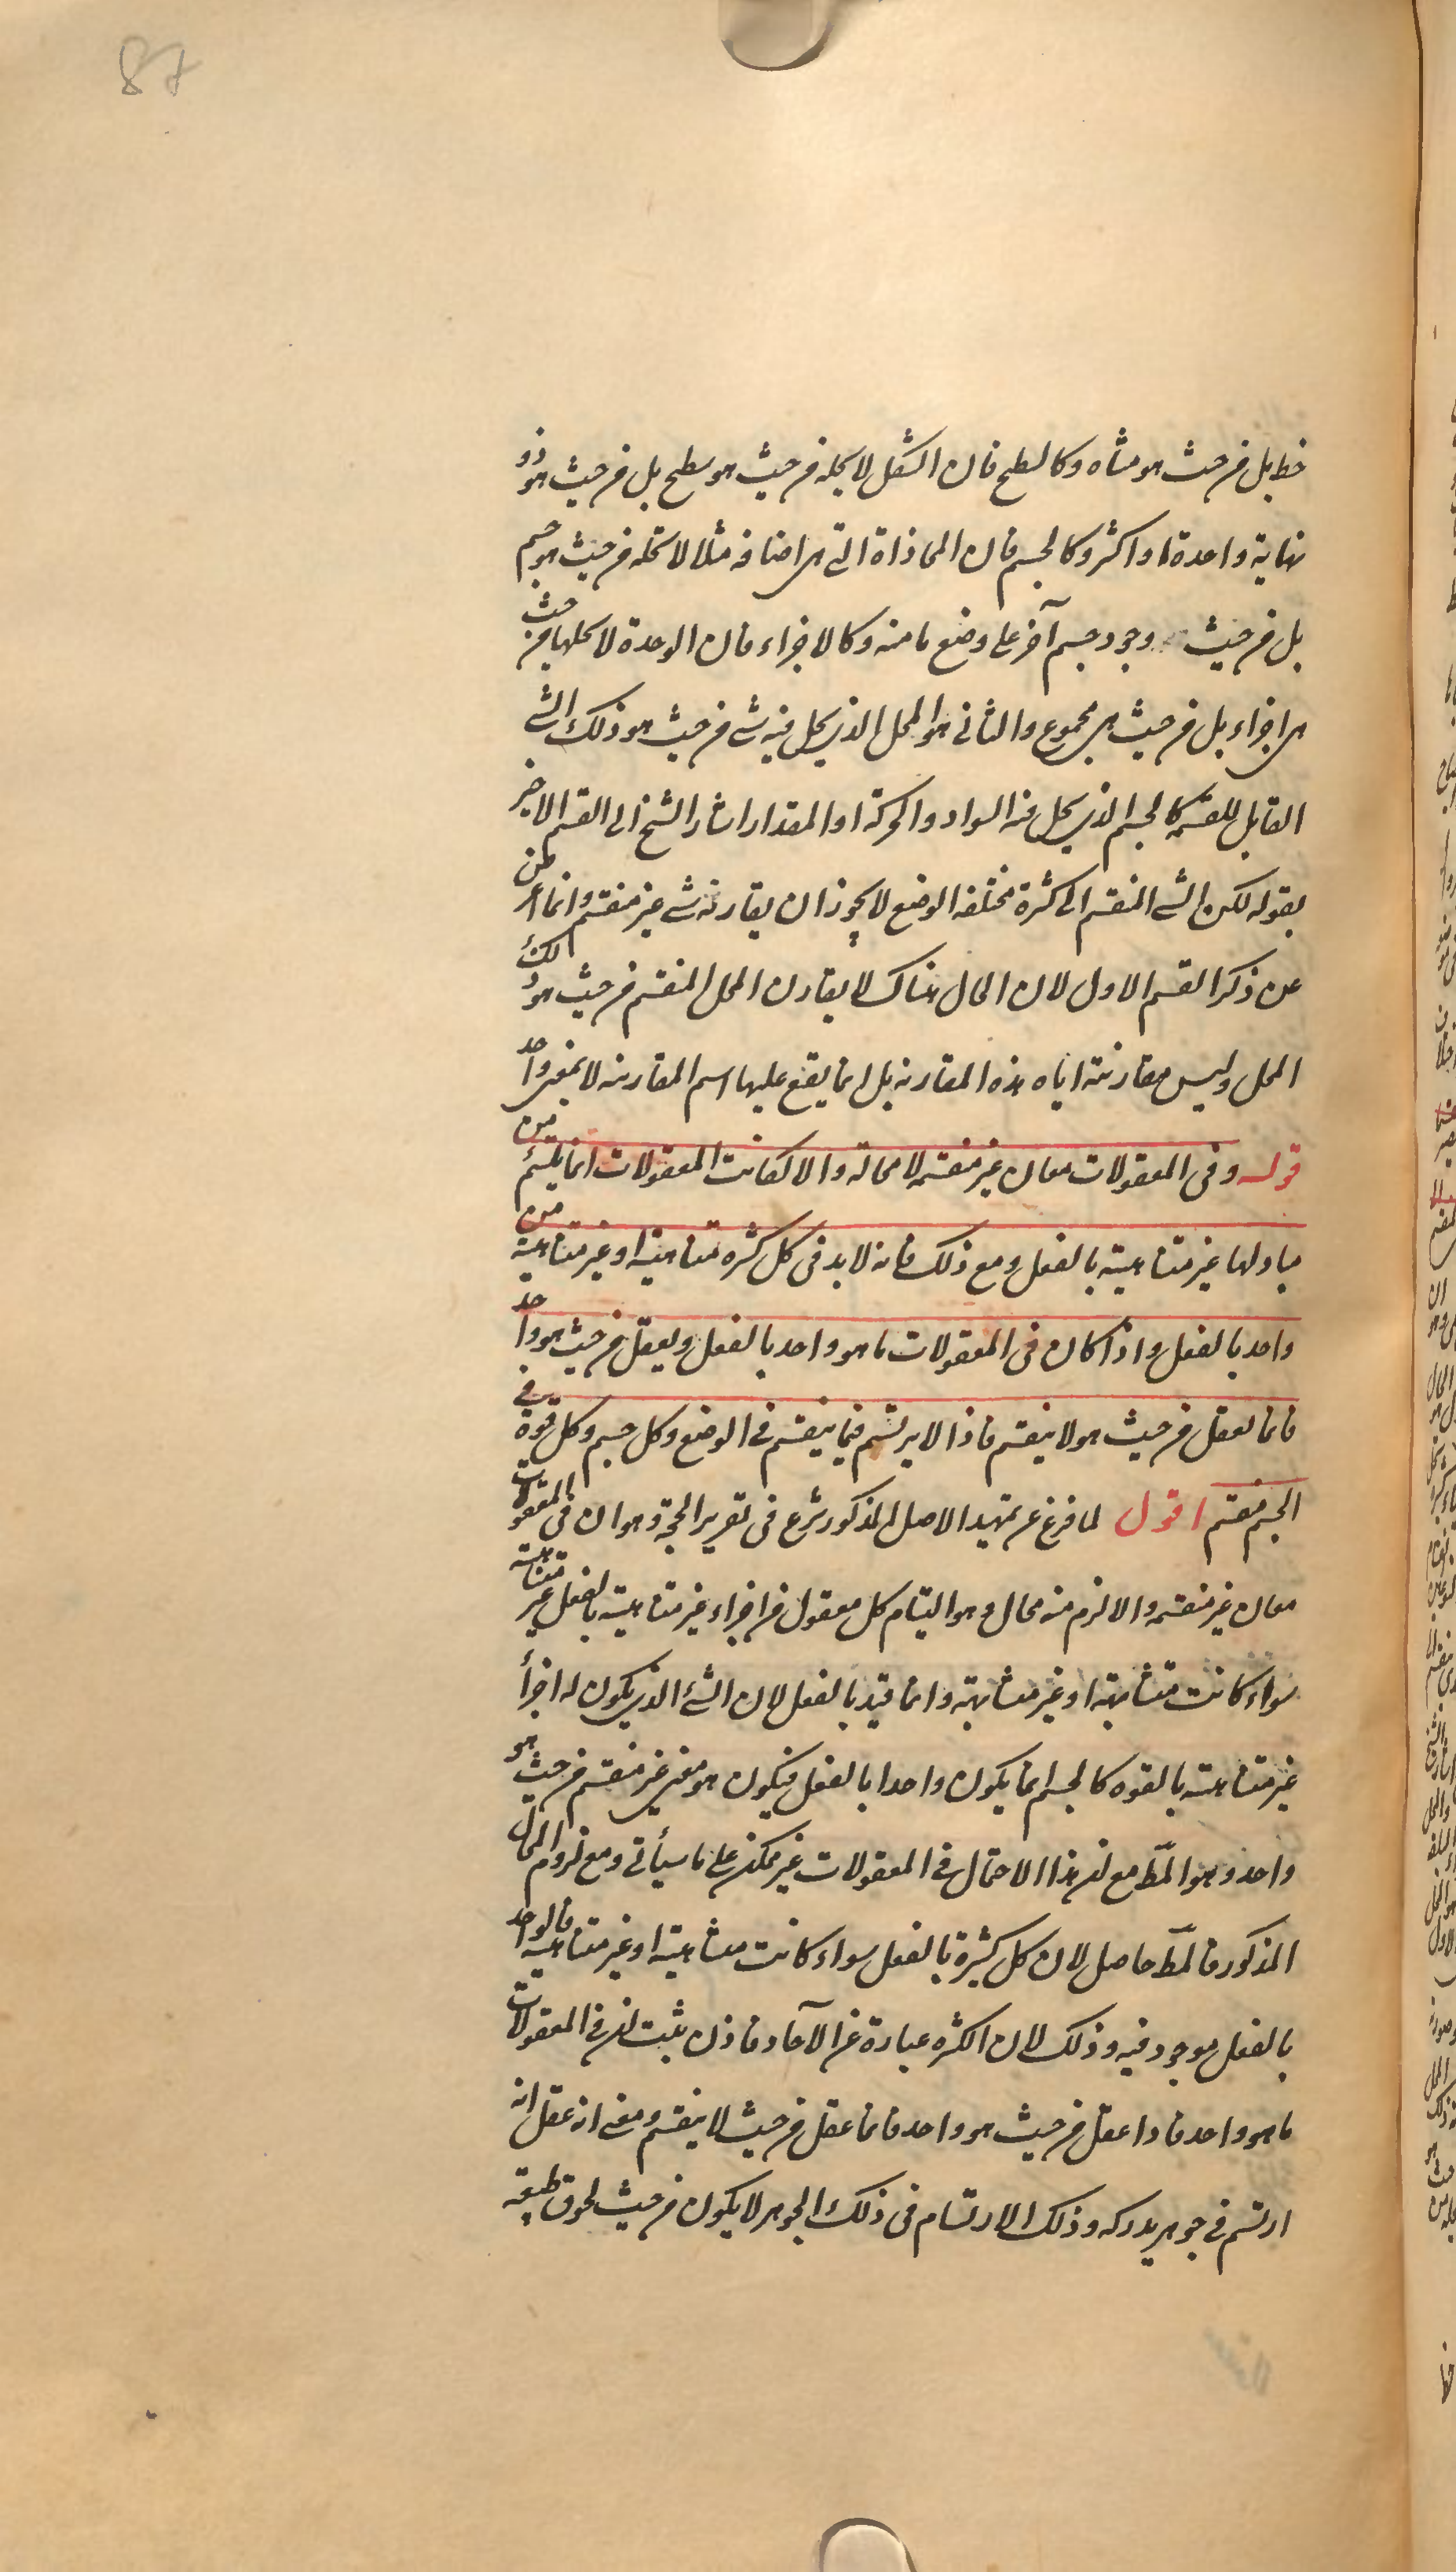 87
خط بل من حيث هو متناه وكالسطح فان الشكل لا يحله من حيث هو سطح بل من حيث هو ذو
نهاية واحدة او اكثر وكالجسم فان المحاذاة التي هي اضافه مثلا لا تحله من حيث هو جسم
بل من حيث وجود جسم آخر على وضع ما منه وكالاجزاء فان الوحدة لا تحلها من حيث
هي اجزاء بل من حيث هي مجموع والثاني هو المحل الذي يحل فيه شئ من حيث هو ذلك الشئ
القابل للقسمه كالجسم الذي يحل فيه السواد والحركة او المقدار اشار الشيخ الى القسم الاخير
بقوله لكن الشئ المنقسم الى كثرة مختلفه الوضع لا يجوز ان يقارنه شئ غير منقسم وانما اعرض
عن ذكر القسم الاول لان الحال هناك لا يقارن المحل المنقسم من حيث هو ذلك
المحل وليس مقارنته اياه هذه المقارنه بل انما يقع عليها اسم المقارنه لا بمعنى واحد
قوله وفى المعقولات معان غير منقسمه لا محالة والا لكانت المعقولات انما يلتئم من
مباد لها غير متناهية بالفعل ومع ذلك فانه لا بد فى كل كثره متناهية او غير متناهية من
واحد بالفعل واذا كان فى المعقولات ما هو واحد بالفعل ويعقل من حيث هو واحد
فانما يعقل من حيث هو لا ينقسم فاذا لا يرتسم فيما ينقسم فى الوضع وكل جسم وكل قوة فى
الجسم منقسم اقول لما فرغ عن تمهيد الاصل المذكور شرع فى تقرير الحجة وهو ان فى المعقولات
معان غير منقسمه والا لزم منه محال وهو التيام كل معقول من اجزاء غير متناهية بالفعل غير متناهية
سواء كانت متشابهة او غير متشابهة وانما قيد بالفعل لان الشئ الذي يكون له اجزأ
غير متناهية بالقوه كالجسم انما يكون واحدا بالفعل فيكون هو معنى غير منقسم من حيث هو
واحد وهو المط مع ان هذا الاحتمال فى المعقولات غير ممكن على ما سيأتى ومع لزوم المحال
المذكور فالمط حاصل لان كل كثرة بالفعل سواء كانت متناهية او غير متناهية فالواحد
بالفعل موجود فيه وذلك لان الكثره عبارة عن الآحاد فاذن يثبت ان فى المعقولات
ما هو واحد فاذا عقل من حيث هو واحد فانما عقل من حيث لا ينقسم ومعنى انه عقل انه
ارتسم فى جوهر يدركه وذلك الارتسام فى ذلك الجوهر لا يكون من حيث لحوق طبيعة